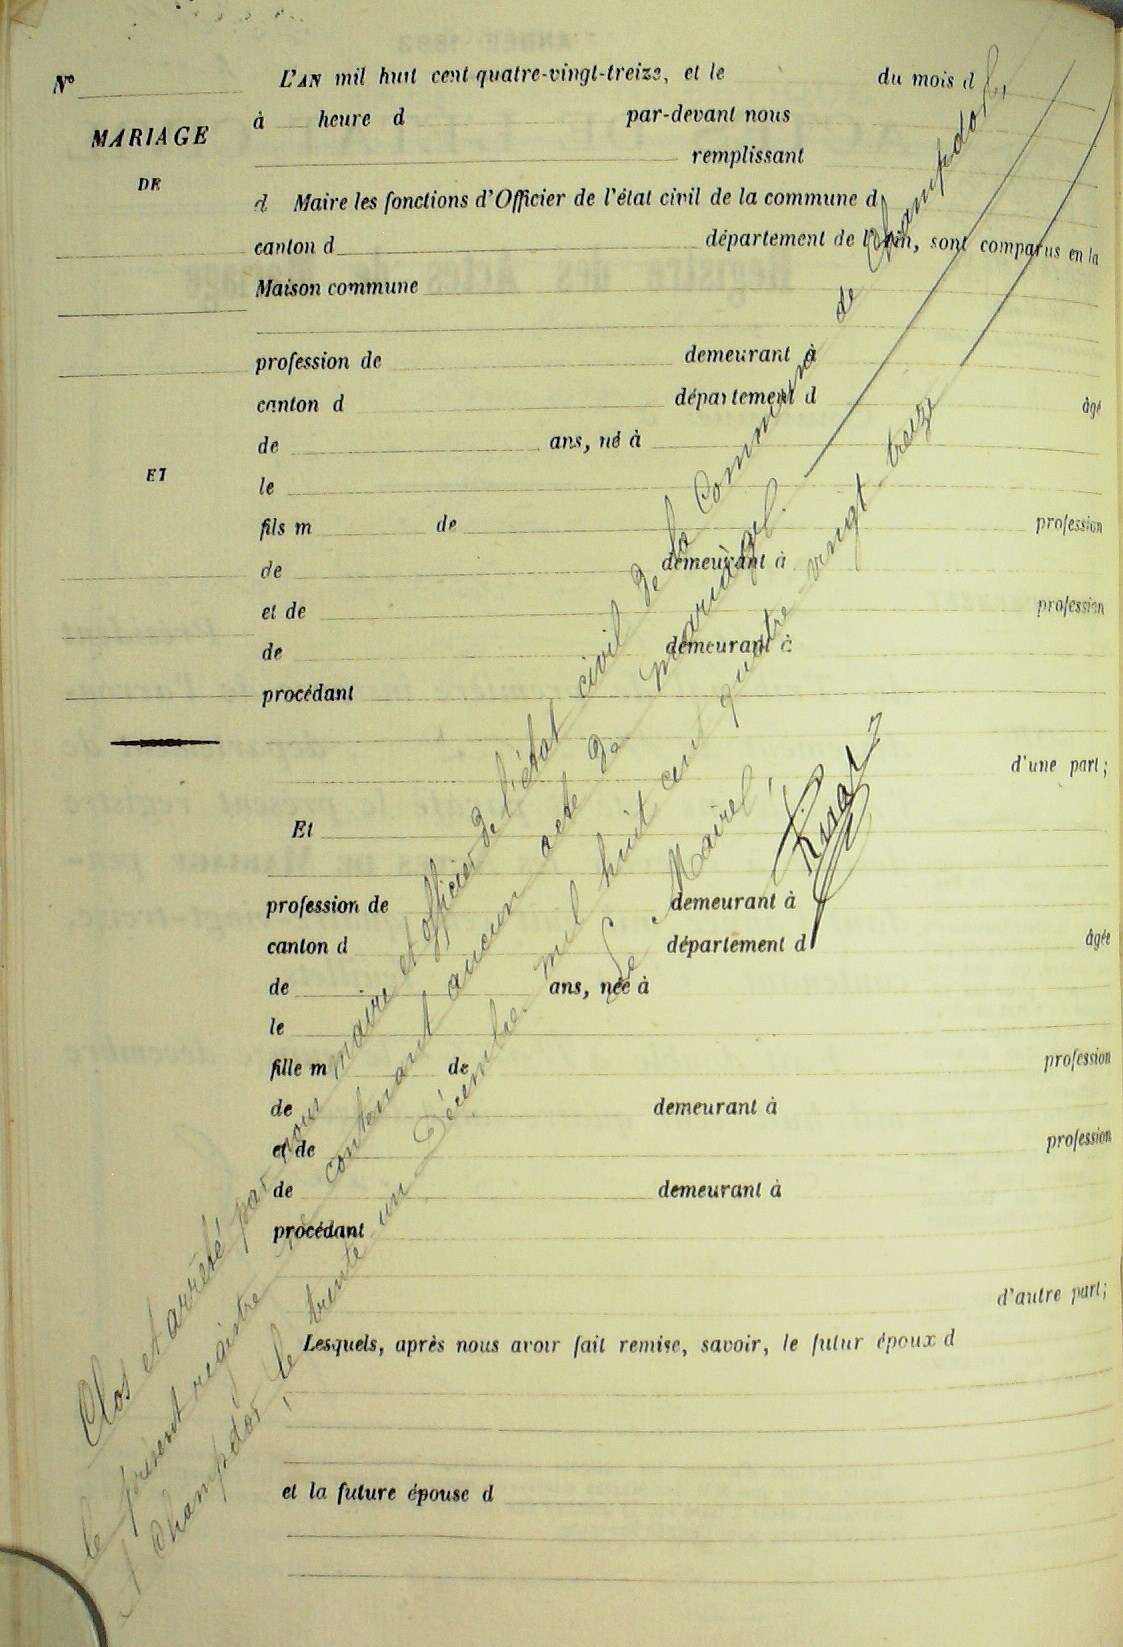 N°
MARIAGE
DE
ET
L'AN mil huit cent quatre-vingt-treize, et le du mois d
à heure d par-devant nous
remplissant
d Maire les fonctions d'Officier de l'état civil de la commune d
canton d département de l'Ain, sont comparus en la
Maison commune
profession de demeurant à
canton d département d âgé
de ans, né à
le
fils m de profession
de demeurant à
et de profession
de demeurant à
procédant
d'une part;
Et
profession de demeurant à
canton d département d âgée
de ans, née à
le
fille m de profession
de demeurant à
et de profession
de demeurant à
procédant
d'autre part;
Lesquels, après nous avoir fait remise, savoir, le futur époux d
et la future épouse d
Clos et arrêté par nous maire et officier de l'état civil de la Commune de Champdor,
le présent registre ne contenant aucun acte de mariage.
A Champdor, le trente un Décembre mil huit cent quatre vingt treize
Le Maire,